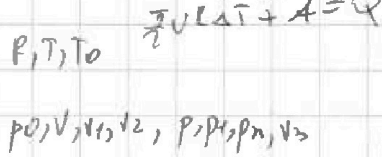 5/2 νRΔT + A = Q
P, T, T0
p0, V, V1, V2, p, p1, p2, V3